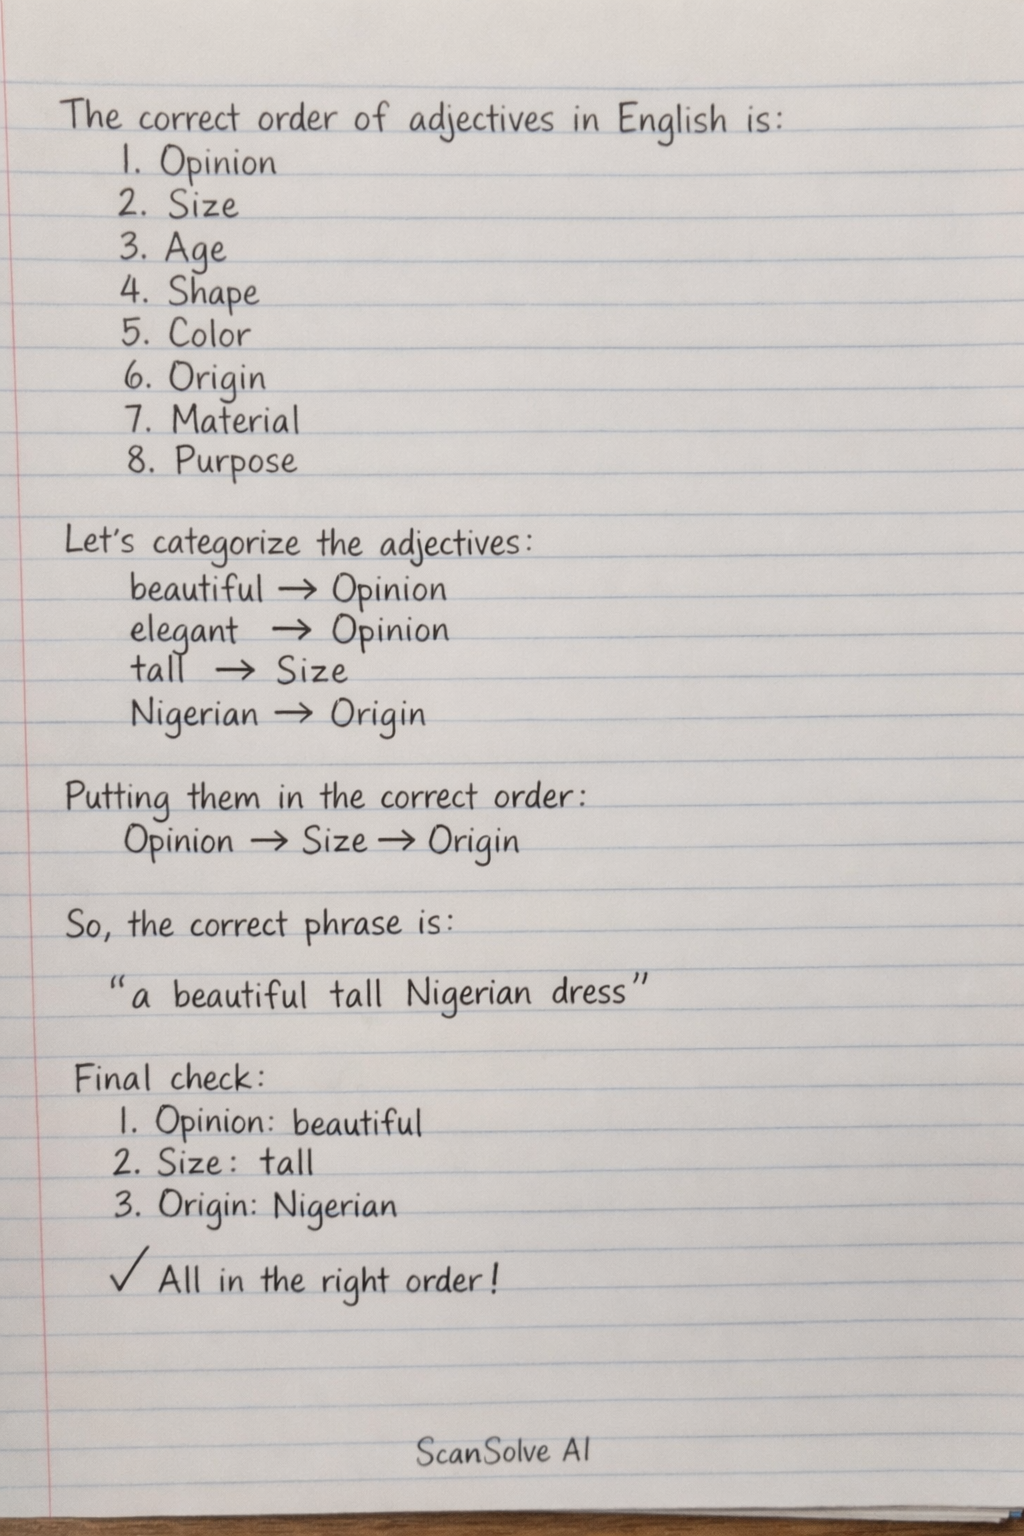 The correct order of adjectives in English is:
1. Opinion
2. Size
3. Age
4. Shape
5. Color
6. Origin
7. Material
8. Purpose
Let's categorize the adjectives:
beautiful → Opinion
elegant → Opinion
tall → Size
Nigerian → Origin
Putting them in the correct order:
Opinion → Size → Origin
So, the correct phrase is:
"a beautiful tall Nigerian dress"
Final check:
1. Opinion: beautiful
2. Size: tall
3. Origin: Nigerian
✓ All in the right order!
ScanSolve AI